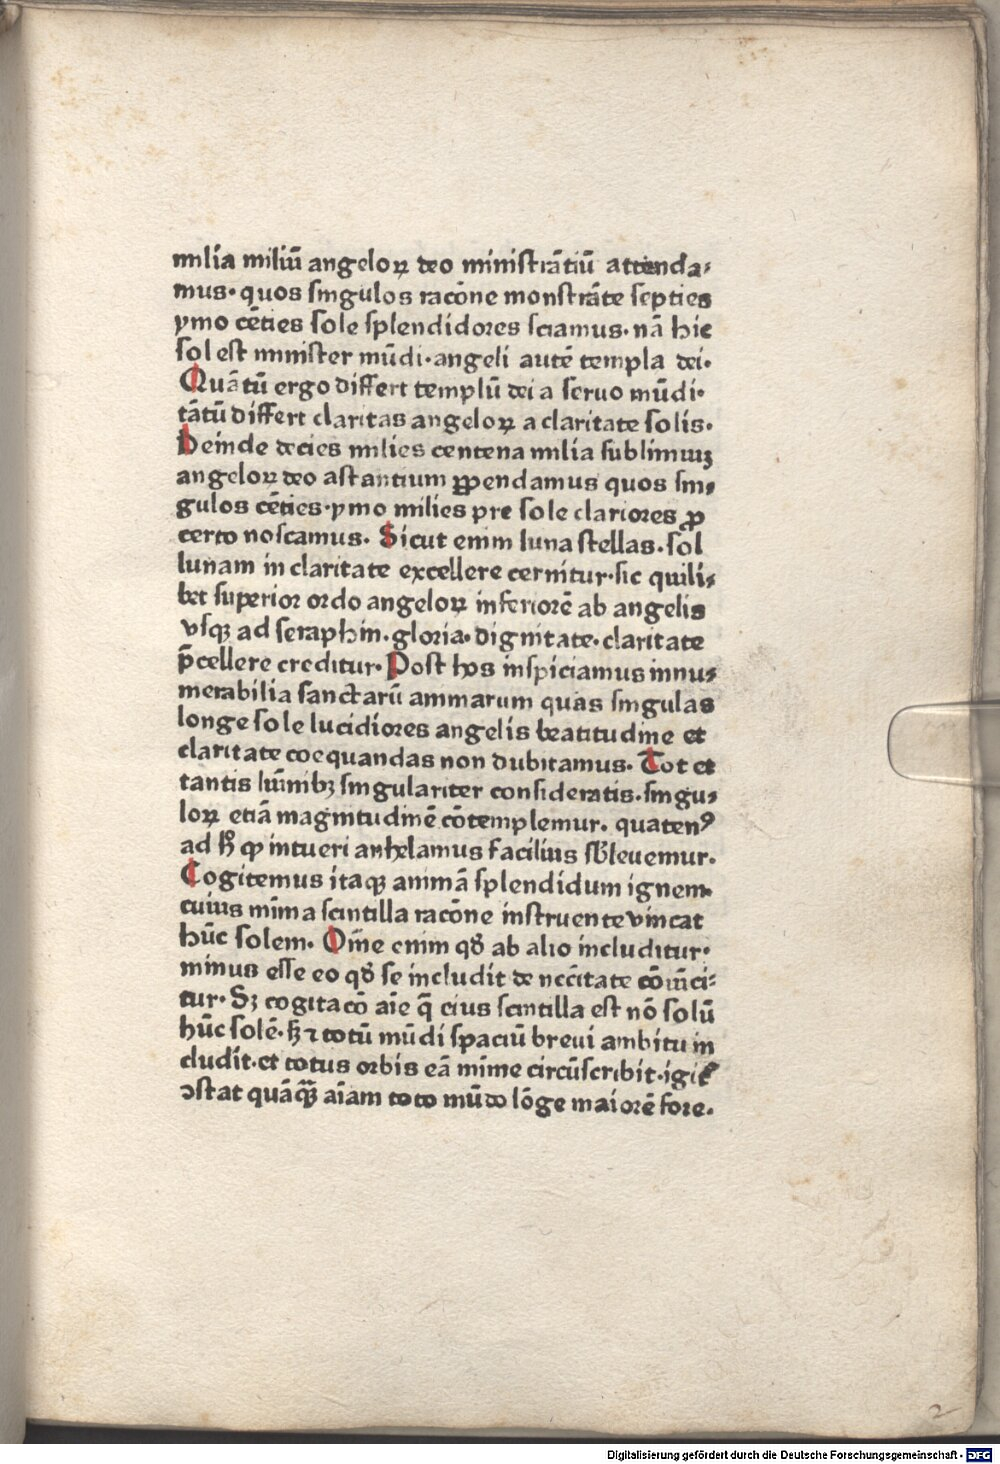 milia miliū angeloꝝ deo ministrātiū attenda⸗
mus. quos singulos racōne monstrāte septies
ymo cēties sole splendidores sciamus. nā hic
sol est minister mūdi. angeli autē templa dei.
Quātū ergo differt templū dei a seruo mūdi.
tātū differt claritas angeloꝝ a claritate solis.
Deinde decies milies centena milia sublimiuꝫ
angeloꝝ deo astantium ꝓpendamus quos sin⸗
gulos cēties. ymo milies pre sole clariores ꝓ
certo noscamus. Sicut enim luna stellas. sol
lunam in claritate excellere cernitur. sic quili⸗
bet superior ordo angeloꝝ inferiorē ab angelis
vsqꝫ ad seraphin. gloria. dignitate. claritate
p̄cellere creditur. Post hos inspiciamus innu⸗
merabilia sanctarū animarum quas singulas
longe sole lucidiores angelis beatitudine et
claritate coequandas non dubitamus. Tot et
tantis lūinibꝫ singulariter consideratis. singu⸗
loꝝ etiā magnitudinē cōtemplemur. quatenꝰ
ad h̄ qp intueri anhelamus facilius sb̄leuemur.
Cogitemus itaqꝫ animā splendidum ignem
cuius minima scintilla racōne instruente vincat
hūc solem. Om̄e enim qd̄ ab alio includitur.
minus esse eo qd̄ se includit de necc̄itate cōuīci⸗
tur. Sꝫ cogitacō aīe q̄ eius scintilla est nō solū
hūc solē. sꝫ ⁊ totū mūdi spaciū breui ambitu in
cludit. et totus orbis eā minīe circūscribit. igit᷑
ꝯstat quāqꝫ aīam toto mūdo lōge maiorē fore.
2
Digitalisierung gefördert durch die Deutsche Forschungsgemeinschaft - DFG